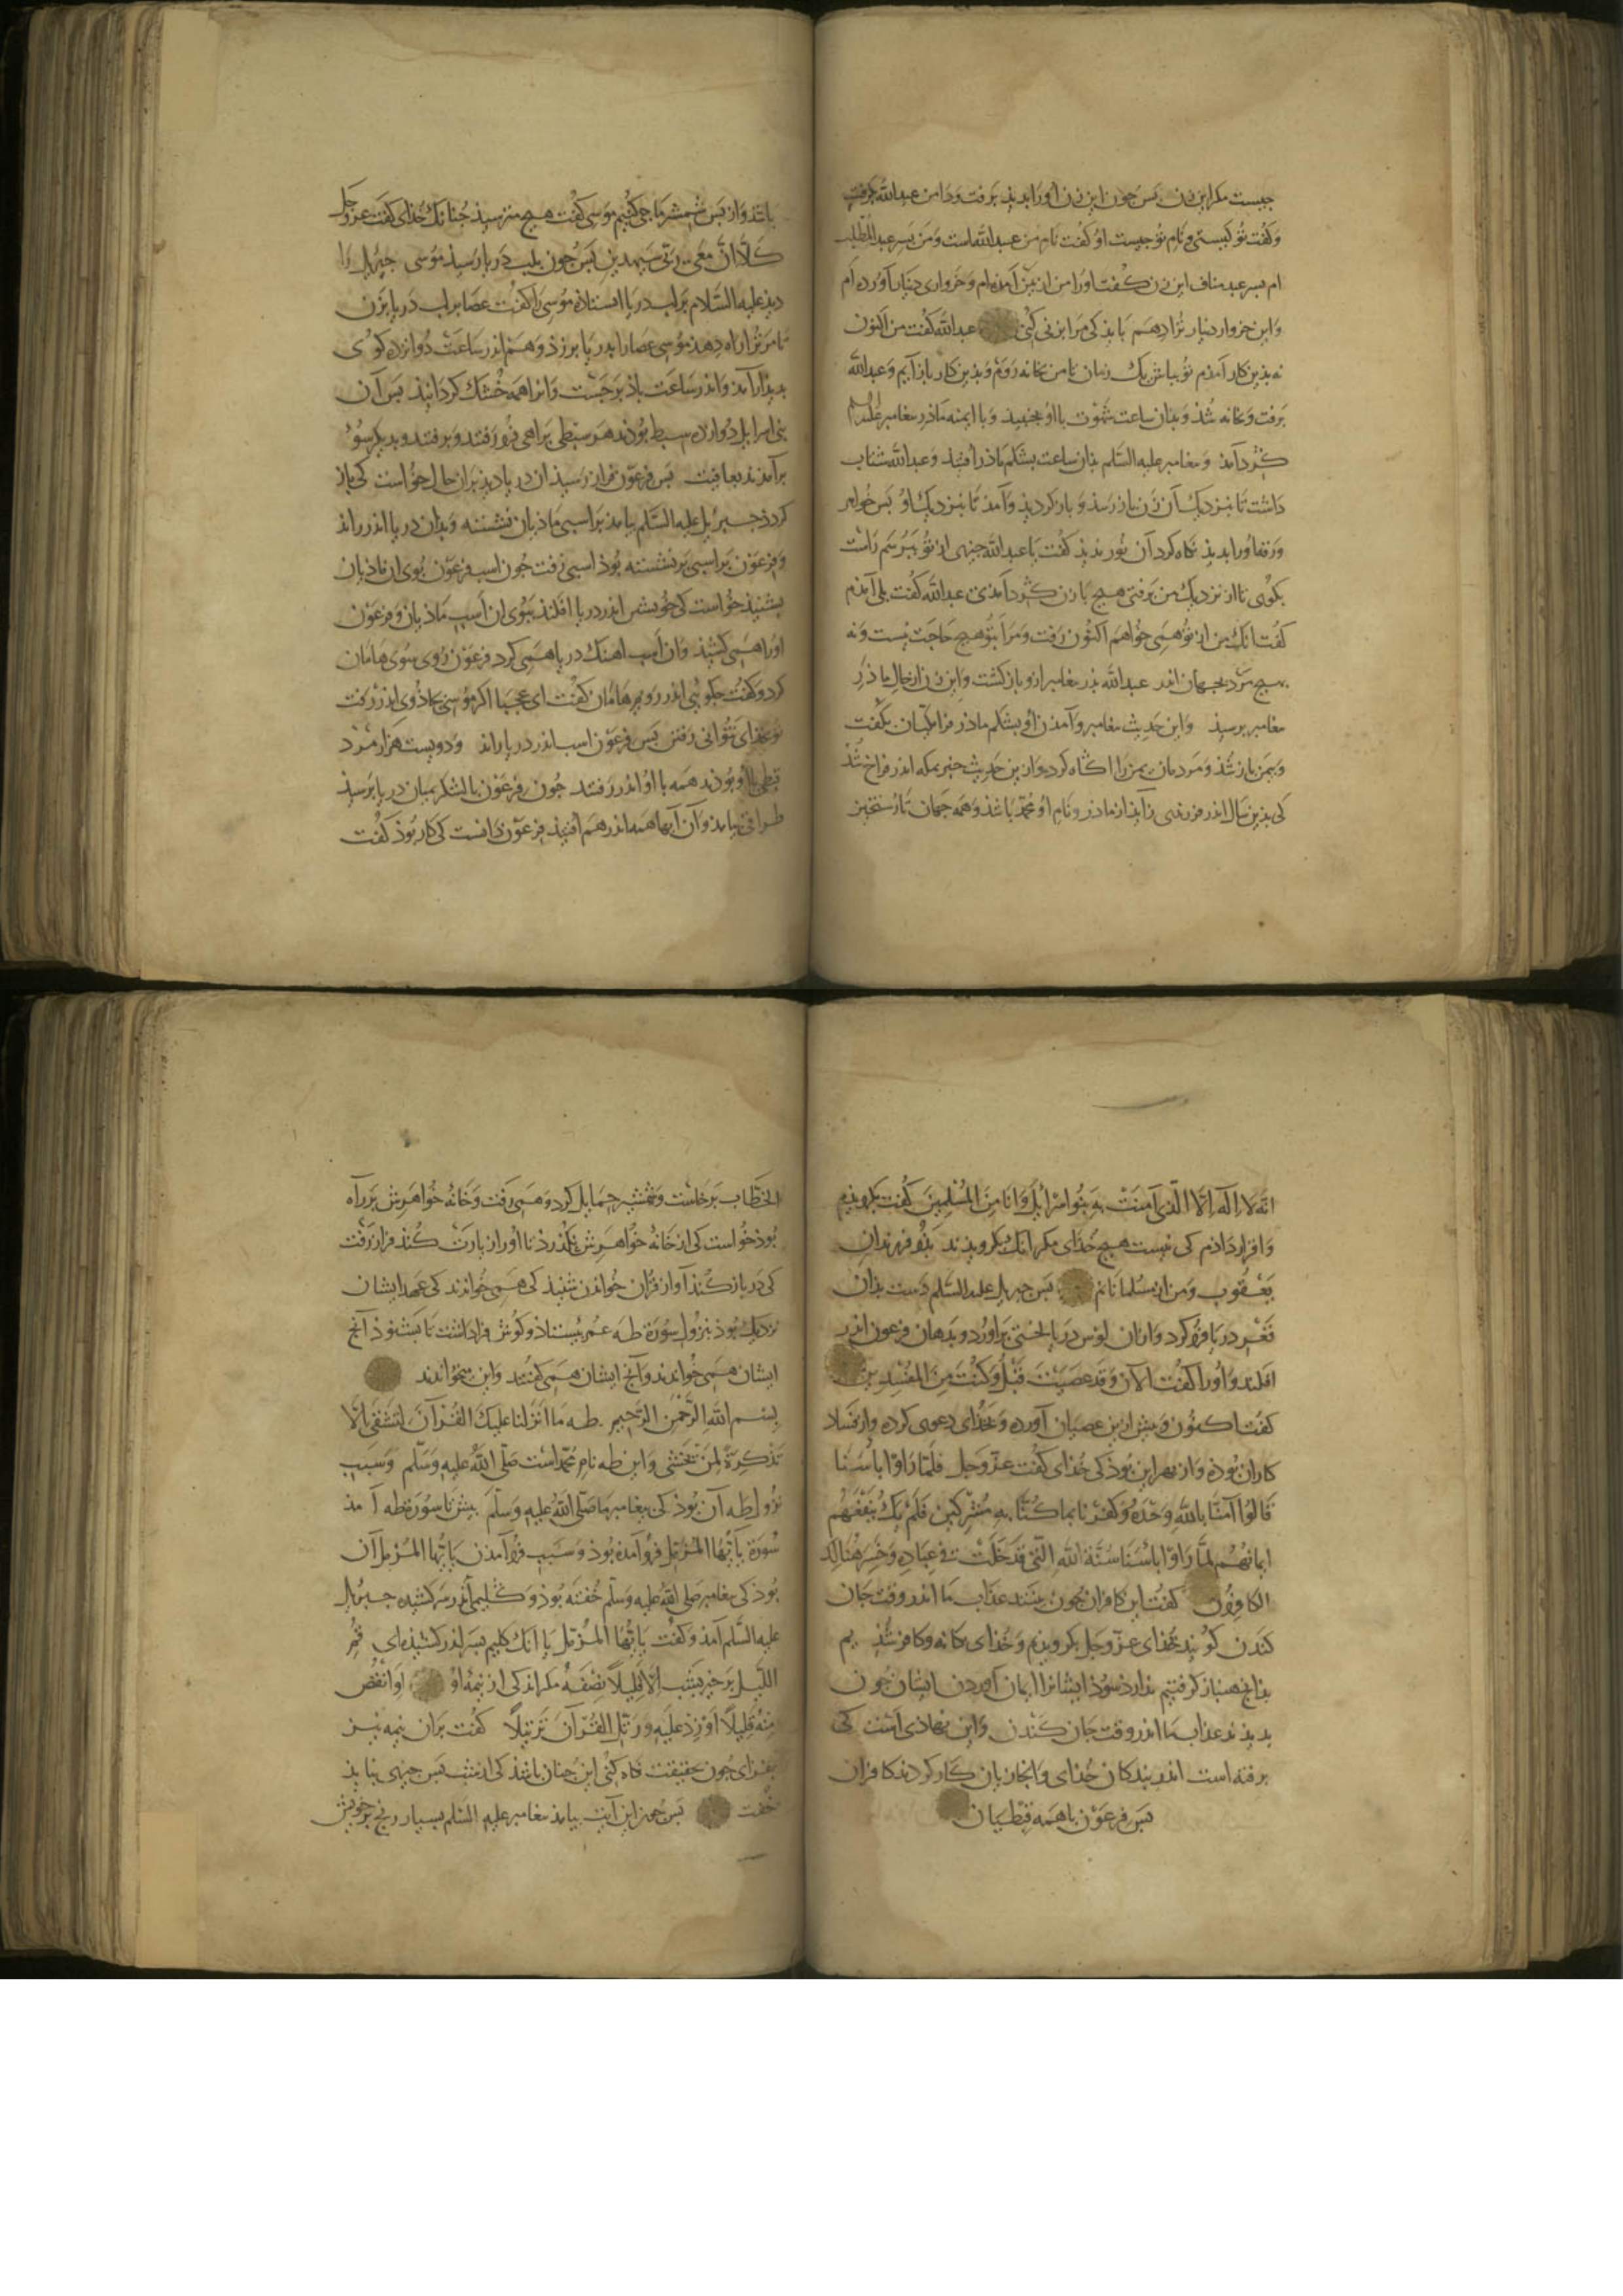 چیست مکر این زن بس چون این زن او را بدید برفت و دامن عبدالله کرفت
و کفت تو کیستی و نام تو چیست او کفت نام من عبدالله است و من بسر عبدالمطلب
ام بسر عبد مناف این زن کفت او را من از یمن آمده ام و خرواری دینار آورده ام
و این خروار دینار ترا دهم باید کی مرا بزنی کنی عبدالله کفت من اکنون
نه بدین کار آمدم تو بباش یک زمان تا من بخانه روم و بدین کار باز آیم و عبدالله
برفت و بخانه شد و بدان ساعت با او بخفتید و با ایمنه ماذر بیغامبر علیه السلم
کرد آمد و بیغامبر علیه السلم بدان ساعت بشکم ماذر افتید و عبدالله شتاب
داشت تا بنزدیک آن زن باز رسد و باز کردید و آمد تا بنزدیک او بس خواهر
ورقه او را بدید نکاه کرد آن نور ندید کفت یا عبدالله چیزی از تو ببرسم راست
بکوی تا از نزدیک من برفتی هیچ با زن کرد آمدی عبدالله کفت بلی آمدم
کفت انک من از تو همی خواهم اکنون رفت و مرا بتو هیچ حاجت نیست و نه
بهیچ مرد بجهان اندر عبدالله بذر بیغامبر ازو باز کشت و این زن از حال ماذر
بیغامبر برسید و این حدیث بیغامبر و آمدن او بشکم ماذر فرا مکیان بکفت
و بیمن باز شد و مردمان یمن را اکاه کرد و از بن حدیث خبر بمکه اندر فراخ شد
کی بدین سال اندر فرزندی زاید از ماذر و نام او محمد باشد و همه جهان تا رستخیز
باشد و از بس شمشیر ما جی کنیم موسی کفت هیچ مترسید چنانک خدای کفت عز و جل
کلا ان معی ربی سیهدین بس چون بلب دریا رسید موسی جبریل را
دید علیه السلام بر لب دریا ایستاده موسی را کفت عصا بر لب دریا بزن
تا مر ترا راه دهد موسی عصا را بدریا برزد و هم اندر ساعت دوازده کوی
بدیدار آمد و اندر ساعت باذ برجست و انرا همه خشک کردانید بس آن
بنی اسرایل دوازده سبط بودند هر سبطی براهی فرو رفتند و برفتند و بدیکر سوء
برآمدند بعافیت بس فرعون فراز رسید ان دریا دید بران حال خواست کی باز
کردد جبرئیل علیه السلم بیامد بر اسبی ماذیان نشسته و بدان دریا اندر راند
و فرعون بر اسبی برنشسته بود اسبی رفت چون اسب فرعون بوی ان ماذیان
بشنید خواست کی خویشتن اندر دریا افکند ببوی ان اسب ماذیان و فرعون
او را همی کشید و ان اسب اهنک دریا همی کرد فرعون روی سوی هامان
کرد و کفت جکویی اندر رویم هامان کفت ای عجبا اکر موسی بجاذوی اندر رفت
تو بخدای نتوانی رفتن بس فرعون اسب اندر دریا راند و دویست هزار مرد
قبطی با او بودند همه با او اندر رفتند جون فرعون با لشکر بمیان دریا برسید
طراقی بیامد و آن آبها همه اندر هم افتید فرعون دانست کی کار بوذ کفت
انه لا اله الا الذی آمنت به بنوا اسرائیل و انا من المسلمین کفت بکرویدم
و اقرار داذم کی نیست هیچ خدای مکر انک بکرویدند بذو فرزندان
یعقوب و من از مسلمانانم بس جبریل علیه السلم دست بدان
قعر دریا فرو کرد و از ان لوس دریا لختی براورد و بدهان فرعون اندر
افکند و او را کفت الآن و قد عصیت قبل و کنت من المفسدین
کفت اکنون و بیش ازین عصیان آورده و بخدای دعوی کرده و از فساد
کاران بوده و از بهر این بوذ کی خدای کفت عز و جل فلما راوا باسنا
قالوا آمنا بالله وحده و کفرنا بما کنا به مشرکین فلم یک ینفعهم
ایمانهم لما راوا باسنا سنة الله التی قد خلت فی عباده و خسر هنالک
الکافرون کفت این کافران چون بینند عذاب ما اندر وقت جان
کندن کویند بخدای عز و جل بکرویدیم و خدای یکانه و کافر شدیم
بدانج همباز کرفتیم ندارد سوذ ایشانرا ایمان آوردن ایشان چون
بدیدند عذاب ما اندر وقت جان کندن و این نهاذی است کی
برفته است اندر بندکان خدای و انجا زیان کار کردند کافران
بس فرعون با همه قبطیان
الخطاب برخاست و شمشیر حمایل کرد و همی رفت و خانه خواهرش بر راه
بوذ خواست کی از خانه خواهرش بکذرد تا او را زیارت کند فراز رفت
کی در باز کند آواز قرآن خواندن شنید کی همی خواندند کی عهد ایشان
نزدیک بوذ بنزول سورة طه عمر بیستاذ و کوش فرا داشت تا بشنود آنج
ایشان همی خواندند و آنج ایشان همی کفتند و این بخواندند
بسم الله الرحمن الرحیم طه ما انزلنا علیک القرآن لتشقی الا
تذکرة لمن یخشی و این طه نام محمد است صلی الله علیه و سلم و سبب
نزول طه آن بوذ کی بیغامبر ما صلی الله علیه و سلم بیش تا سورة طه آمد
سورة یا ایها المزمل فرو آمده بوذ و سبب فرو آمدن یا ایها المزمل آن
بوذ کی بیغامبر صلی الله علیه و سلم خفته بوذ و کلیمی اندر سر کشیده جبریل
علیه السلم آمذ و کفت یا ایها المزمل یا انک کلیم بسر اندر کشیده ای قم
اللیل برخیز بشب الا قلیلا نصفه مکر اندکی از نیمه او او انقص
منه قلیلا او زد علیه و رتل القرآن ترتیلا کفت بران نیمه نیز
بفزای چون بحقیقت نکاه کنی این چنان باشد کی از شب بس چیزی نباید
خفت بس چون این آیت بیامد بیغامبر علیه السلم بسیار رنج بر خویش